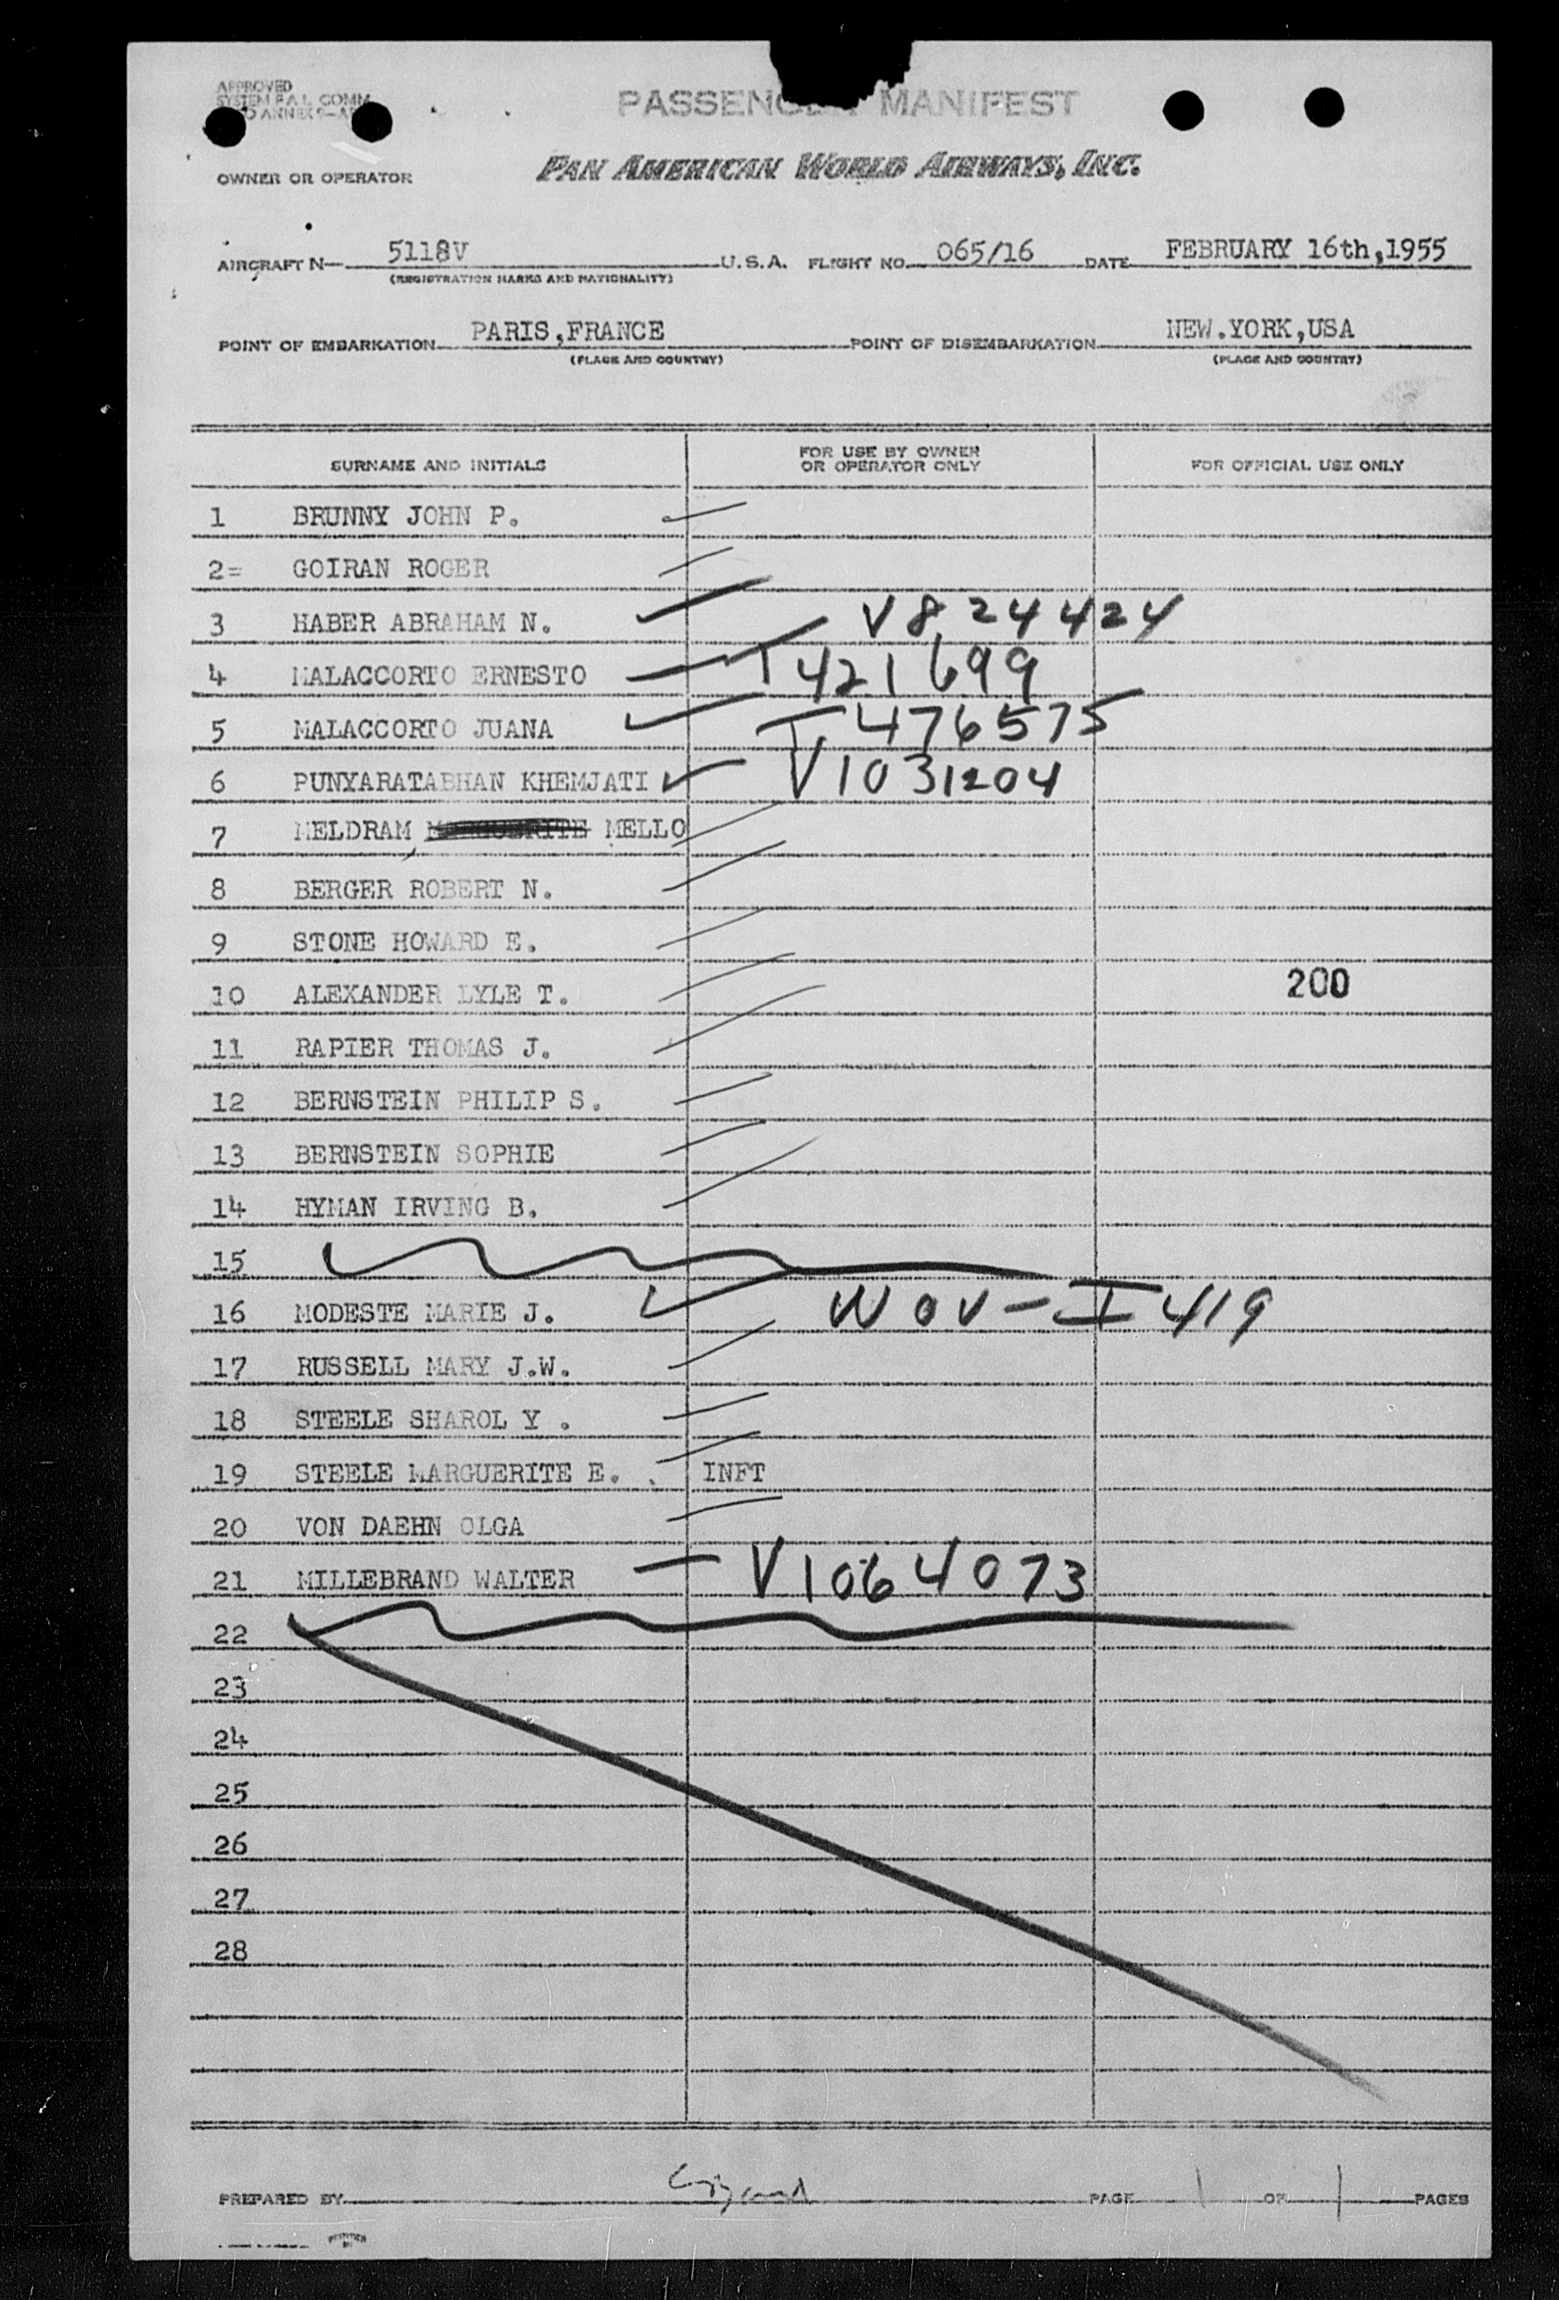 APPROVED
SYSTEM F.A.L. COMM
ANNEX 9
PASSENGER MANIFEST
PAN AMERICAN WORLD AIRWAYS, INC.
OWNER OR OPERATOR
AIRCRAFT N— 5118V U.S.A. FLIGHT NO. 065/16 DATE FEBRUARY 16th,1955
(REGISTRATION MARKS AND NATIONALITY)
POINT OF EMBARKATION PARIS,FRANCE POINT OF DISEMBARKATION NEW.YORK,USA
(PLACE AND COUNTRY) (PLACE AND COUNTRY)
SURNAME AND INITIALS FOR USE BY OWNER OR OPERATOR ONLY FOR OFFICIAL USE ONLY
1 BRUNNY JOHN P.
2= GOIRAN ROGER
3 HABER ABRAHAM N. V 824424
4 MALACCORTO ERNESTO T 421699
5 MALACCORTO JUANA T 476575
6 PUNYARATABHAN KHEMJATI V1031204
7 MELDRAM MARGUERITE MELLO
8 BERGER ROBERT N.
9 STONE HOWARD E.
10 ALEXANDER LYLE T. 200
11 RAPIER THOMAS J.
12 BERNSTEIN PHILIP S.
13 BERNSTEIN SOPHIE
14 HYMAN IRVING B.
15
16 MODESTE MARIE J. WOV-I419
17 RUSSELL MARY J.W.
18 STEELE SHAROL Y .
19 STEELE MARGUERITE E. . INFT
20 VON DAEHN OLGA
21 MILLEBRAND WALTER V1064073
22
23
24
25
26
27
28
PREPARED BY PAGE 1 OF 1 PAGES